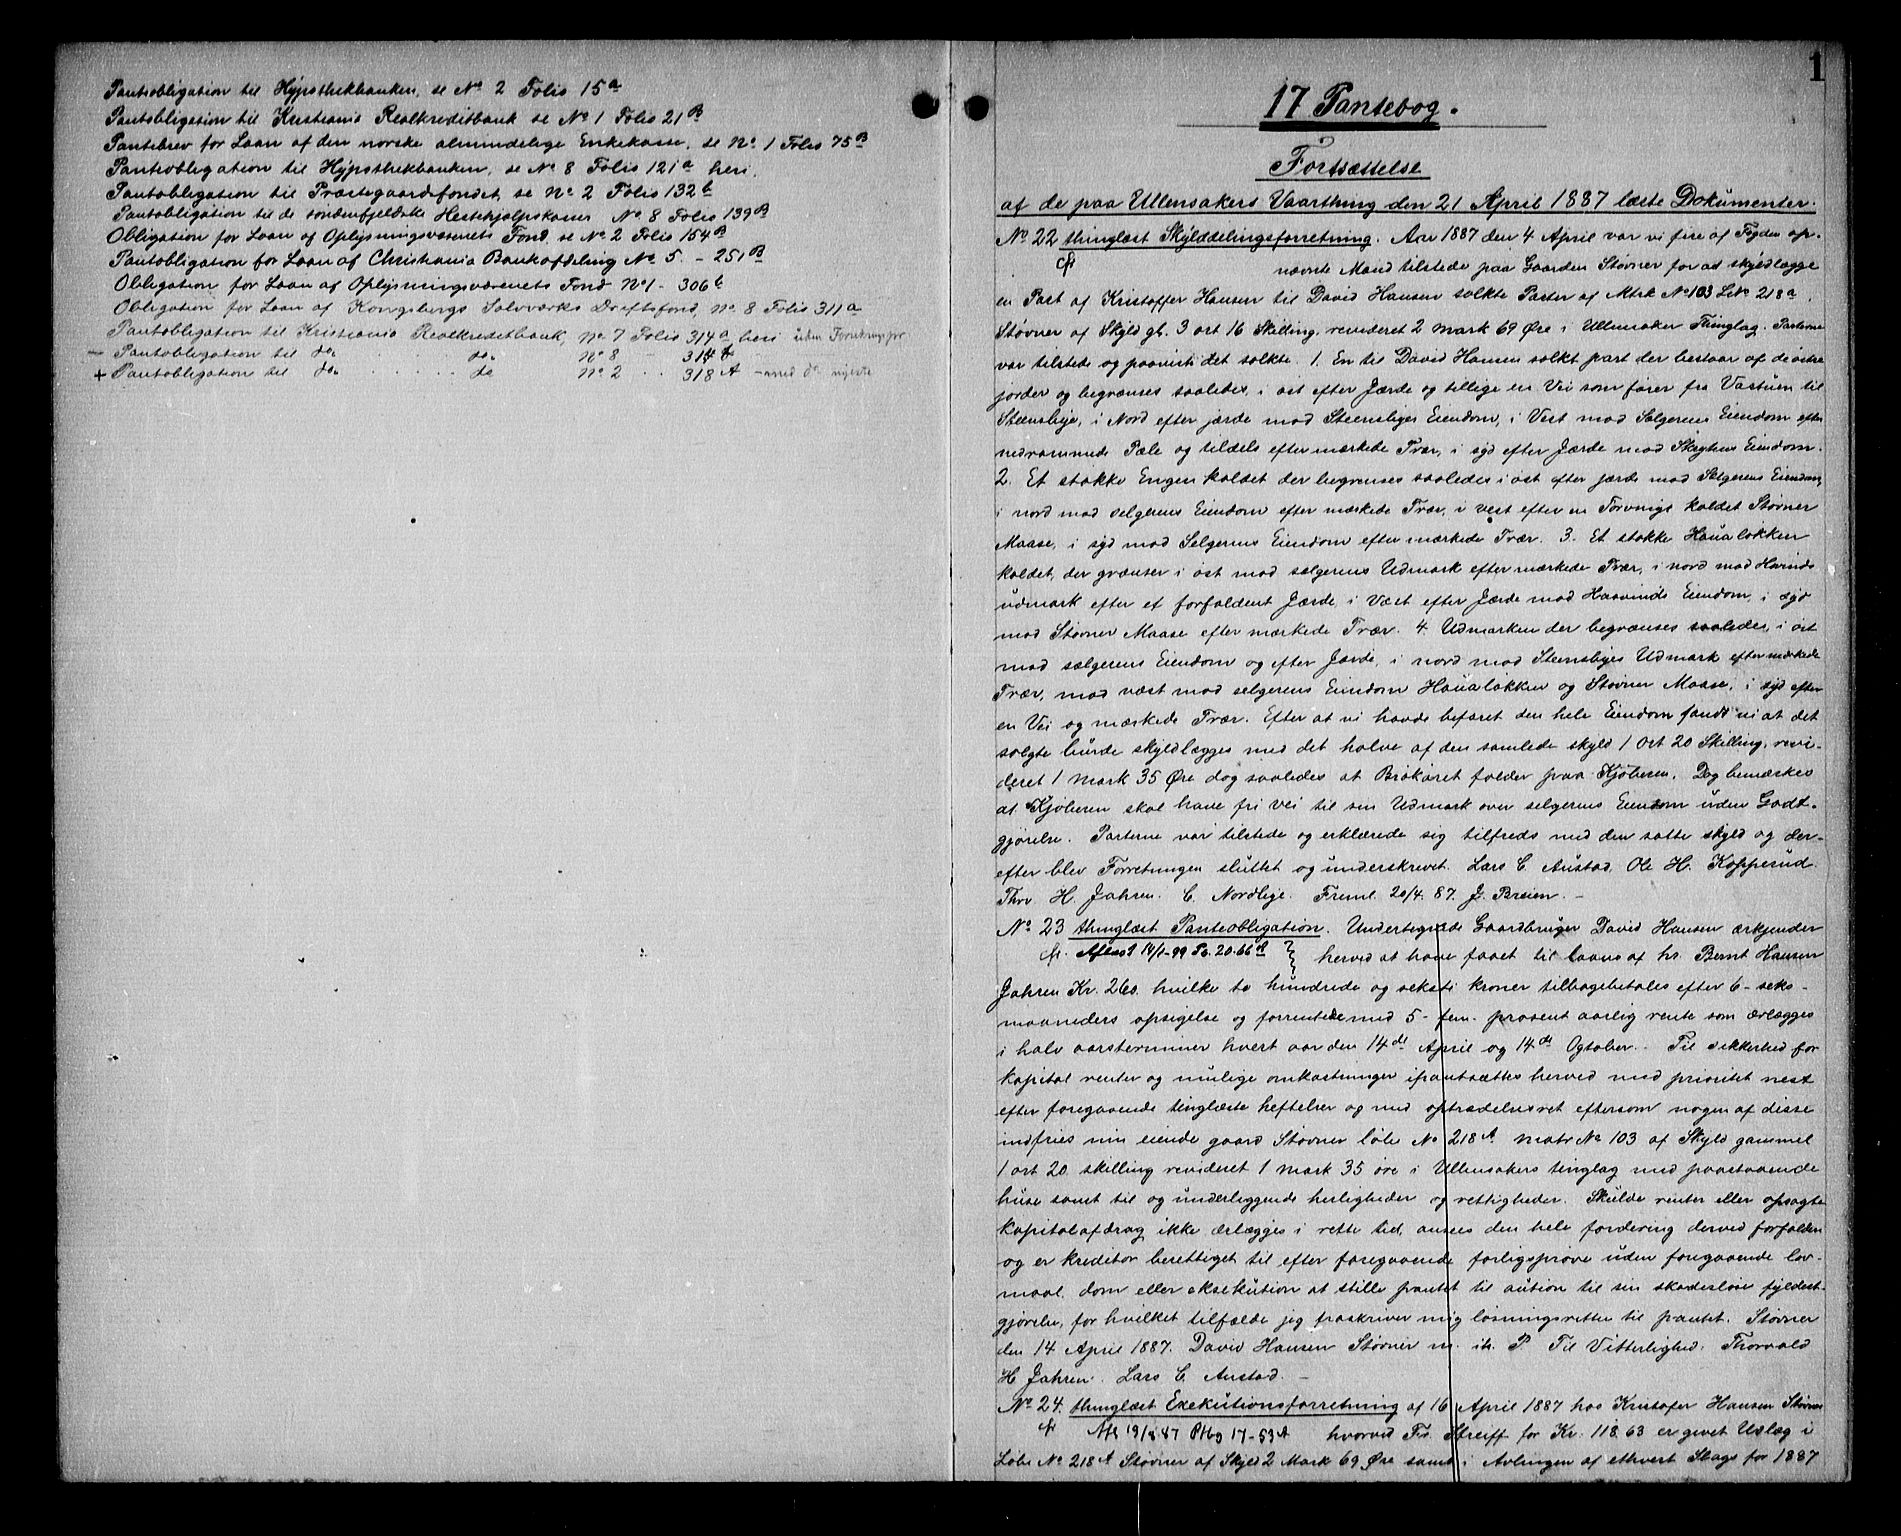 Pantobligation til Hypothekbanken, se No 2 Folio 15a
Pantobligation til Kristiania Realkreditbank se No 1 Folio 21B
Pantebrev for Laan af den norske almindelige Enkekasse, se No. 1 Folio 75B
Pantobligation til Hypothekbanken, se No 8 Folio 121a heri.
Pantobligation til Præstegaardsfondet, se No 2 Folio 132b
Pantobligation til de söndenfjeldske Hestehjælpskasser No 8 Folio 139B
Obligation for Laan af Oplysningsvæsenets Fond, se No 2 Folio 154B
Pantobligation for Laan af Christiania Bankafdeling No 5. - 251B
Obligation for Laan af Oplysningsvæsenets Fond No 1 - 306b
Obligation for Laan af Kongsbergs Sølvværks Driftsfond, No 8 Folio 311a
Pantobligation til Kristiania Realkreditbank, No 7 Folio 314a heri uden
- Pantobligation til do. do. No 8 - 314b
+ Pantobligation til do. do No 2 318A - med do
1
17 Pantebog.
Fortsættelse
af de paa Ullensakers Vaarthing den 21 April 1887 læste Dokumenter.
No 22 thinglæst Skylddelingsforretning. Aar 1887 den 4 April var vi fire af Fogden op-
nævnte Mænd tilstede paa Gaarden Støvner for at skyldlægge
en Part af Kristoffer Hansen til David Hansen solkte Parter af Mtrk No 103 LNo 218a.
Støvner af Skyld gl. 3 ort 16 Skilling, revideret 2 mark 69 Øre i Ullensaker Thinglag. Parterne
var tilstede og paaviste det solkte. 1. En til David Hansen solkt part der bestaar af de østre
jorder og begrænses saaledes, i øst efter Jærde og tillige en Vei som fører fra Vastuen til
Steensbye, i Nord efter jærde mod Steensbyes Eiendom, i Vest mod Selgerens Eiendom efter
nedrammede Pæle og tildels efter mærkede Træer, i syd efter Jærde mod Eiendom.
2. Et støkke Engen kaldet der begrenses saaledes i øst efter jærde mod Selgerens Eiendom,
i nord mod selgerens Eiendom efter mærkede Træer, i vest efter en Torvmyr kaldet Støvner
Maase, i syd mod Selgerens Eiendom efter mærkede Træer. 3. Et støkke Haualøkken
kaldet, der grænser i øst mod sælgerens Udmark efter mærkede Træer, i nord mod Hovinds
udmark efter et forfaldent Jærde, i Væst efter Jærde mod Haavinds Eiendom, i syd
mod Støvner Maase efter mærkede Træer. 4. Udmarken der begrænses saaledes, i øst
mod sælgerens Eiendom og efter Jærde, i nord mod Steensbyes Udmark efter mærkede
Træer, mod væst mod selgerens Eiendom Haualøkken og Støvner Maase, i syd efter
en Vei og mærkede Træer. Efter at vi havde befaret den hele Eiendom fandt vi at det
solgte burde skyldlægges med det halve af den samlede skyld 1 Ort 20 Skilling, revi-
deret 1 mark 35 Øre dog saaledes at Brøkøret falder paa Kjøberen. Dog bemærkes
at Kjøberen skal have fri vei til sin Udmark over selgerens Eiendom uden Godt-
gjørelse. Parterne var tilstede og erklærede sig tilfreds med den satte skyld og der-
efter blev Forretningen sluttet og underskrevet. Lars C. Austad. Ole H. Kopperud.
Thrv. H. Jahren. C. Nordbye. Freml. 20/4. 87. J. Breien. -
No 23 thinglæst Panteobligation. Undertegnede Gaardbruger David Hansen ærkjender
cfr. Aflæst 14/1-99 Pb. 20.66a herved at have faaet til laans af hr. Bernt Hansen
Jahren Kr. 260. hvilke to hundrede og seksti kroner tilbagebetales efter 6 - seks-
maaneders opsigelse og forrentede med 5 - fem - prosent aarlig rente som ærlægges
i halv aarsterminer hvert aar den 14de April og 14de Ogtober. Til sikkerhed for
kapital renter og mulige omkostninger ipantsættes herved med prioritet nest
efter foregaaende tinglæste heftelser og med optrædelsesret eftersom nogen af disse
indfries min eiende gaard Støvner løbe No 218A matr No 103 af Skyld gammel
1 ort 20 skilling revideret 1 mark 35 öre i Ullensakers tinglag med paastaaende
huse samt til og underliggende herligheder og rettigheder. Skulde renter eller opsagte
kapitalafdrag ikke ærlægges i rette tid, ansees den hele fordering derved forfalden
og er kreditor berettiget til efter foregaaende forligsprøve uden foregaaende lov-
maal, dom eller eksekution at stille pantet til aution til sin skadesløse fyldest-
gjørelse, for hvilket tilfælde jeg fraskriver mig løsningsretten til pantet. Støvner
den 14 April 1887. David Hansen Støvner m. ih. P. Til Vitterlighed. Thorvald
H. Jahren. Lars C. Austad. -
No 24. thinglæst Exekutionsforretning af 16 April 1887 hos Kristofer Hansen Støvner
Afl 19/8 87 Pbg 17-53A hvorved Fr. Streiff for Kr. 118.63 er givet Udlæg i
Løbe No 218A Støvner af Skyld 2 Mark 69 Øre samt i Avlingen af ethvert Slags for 1887